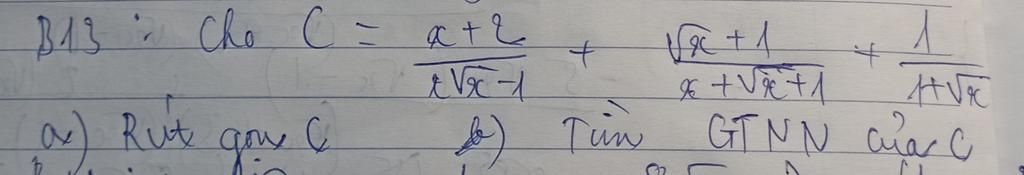 B13 : Cho C = \frac{x+2}{x\sqrt{x}-1} + \frac{\sqrt{x}+1}{x+\sqrt{x}+1} + \frac{1}{1+\sqrt{x}}
a) Rút gọn C b) Tìm GTNN của C